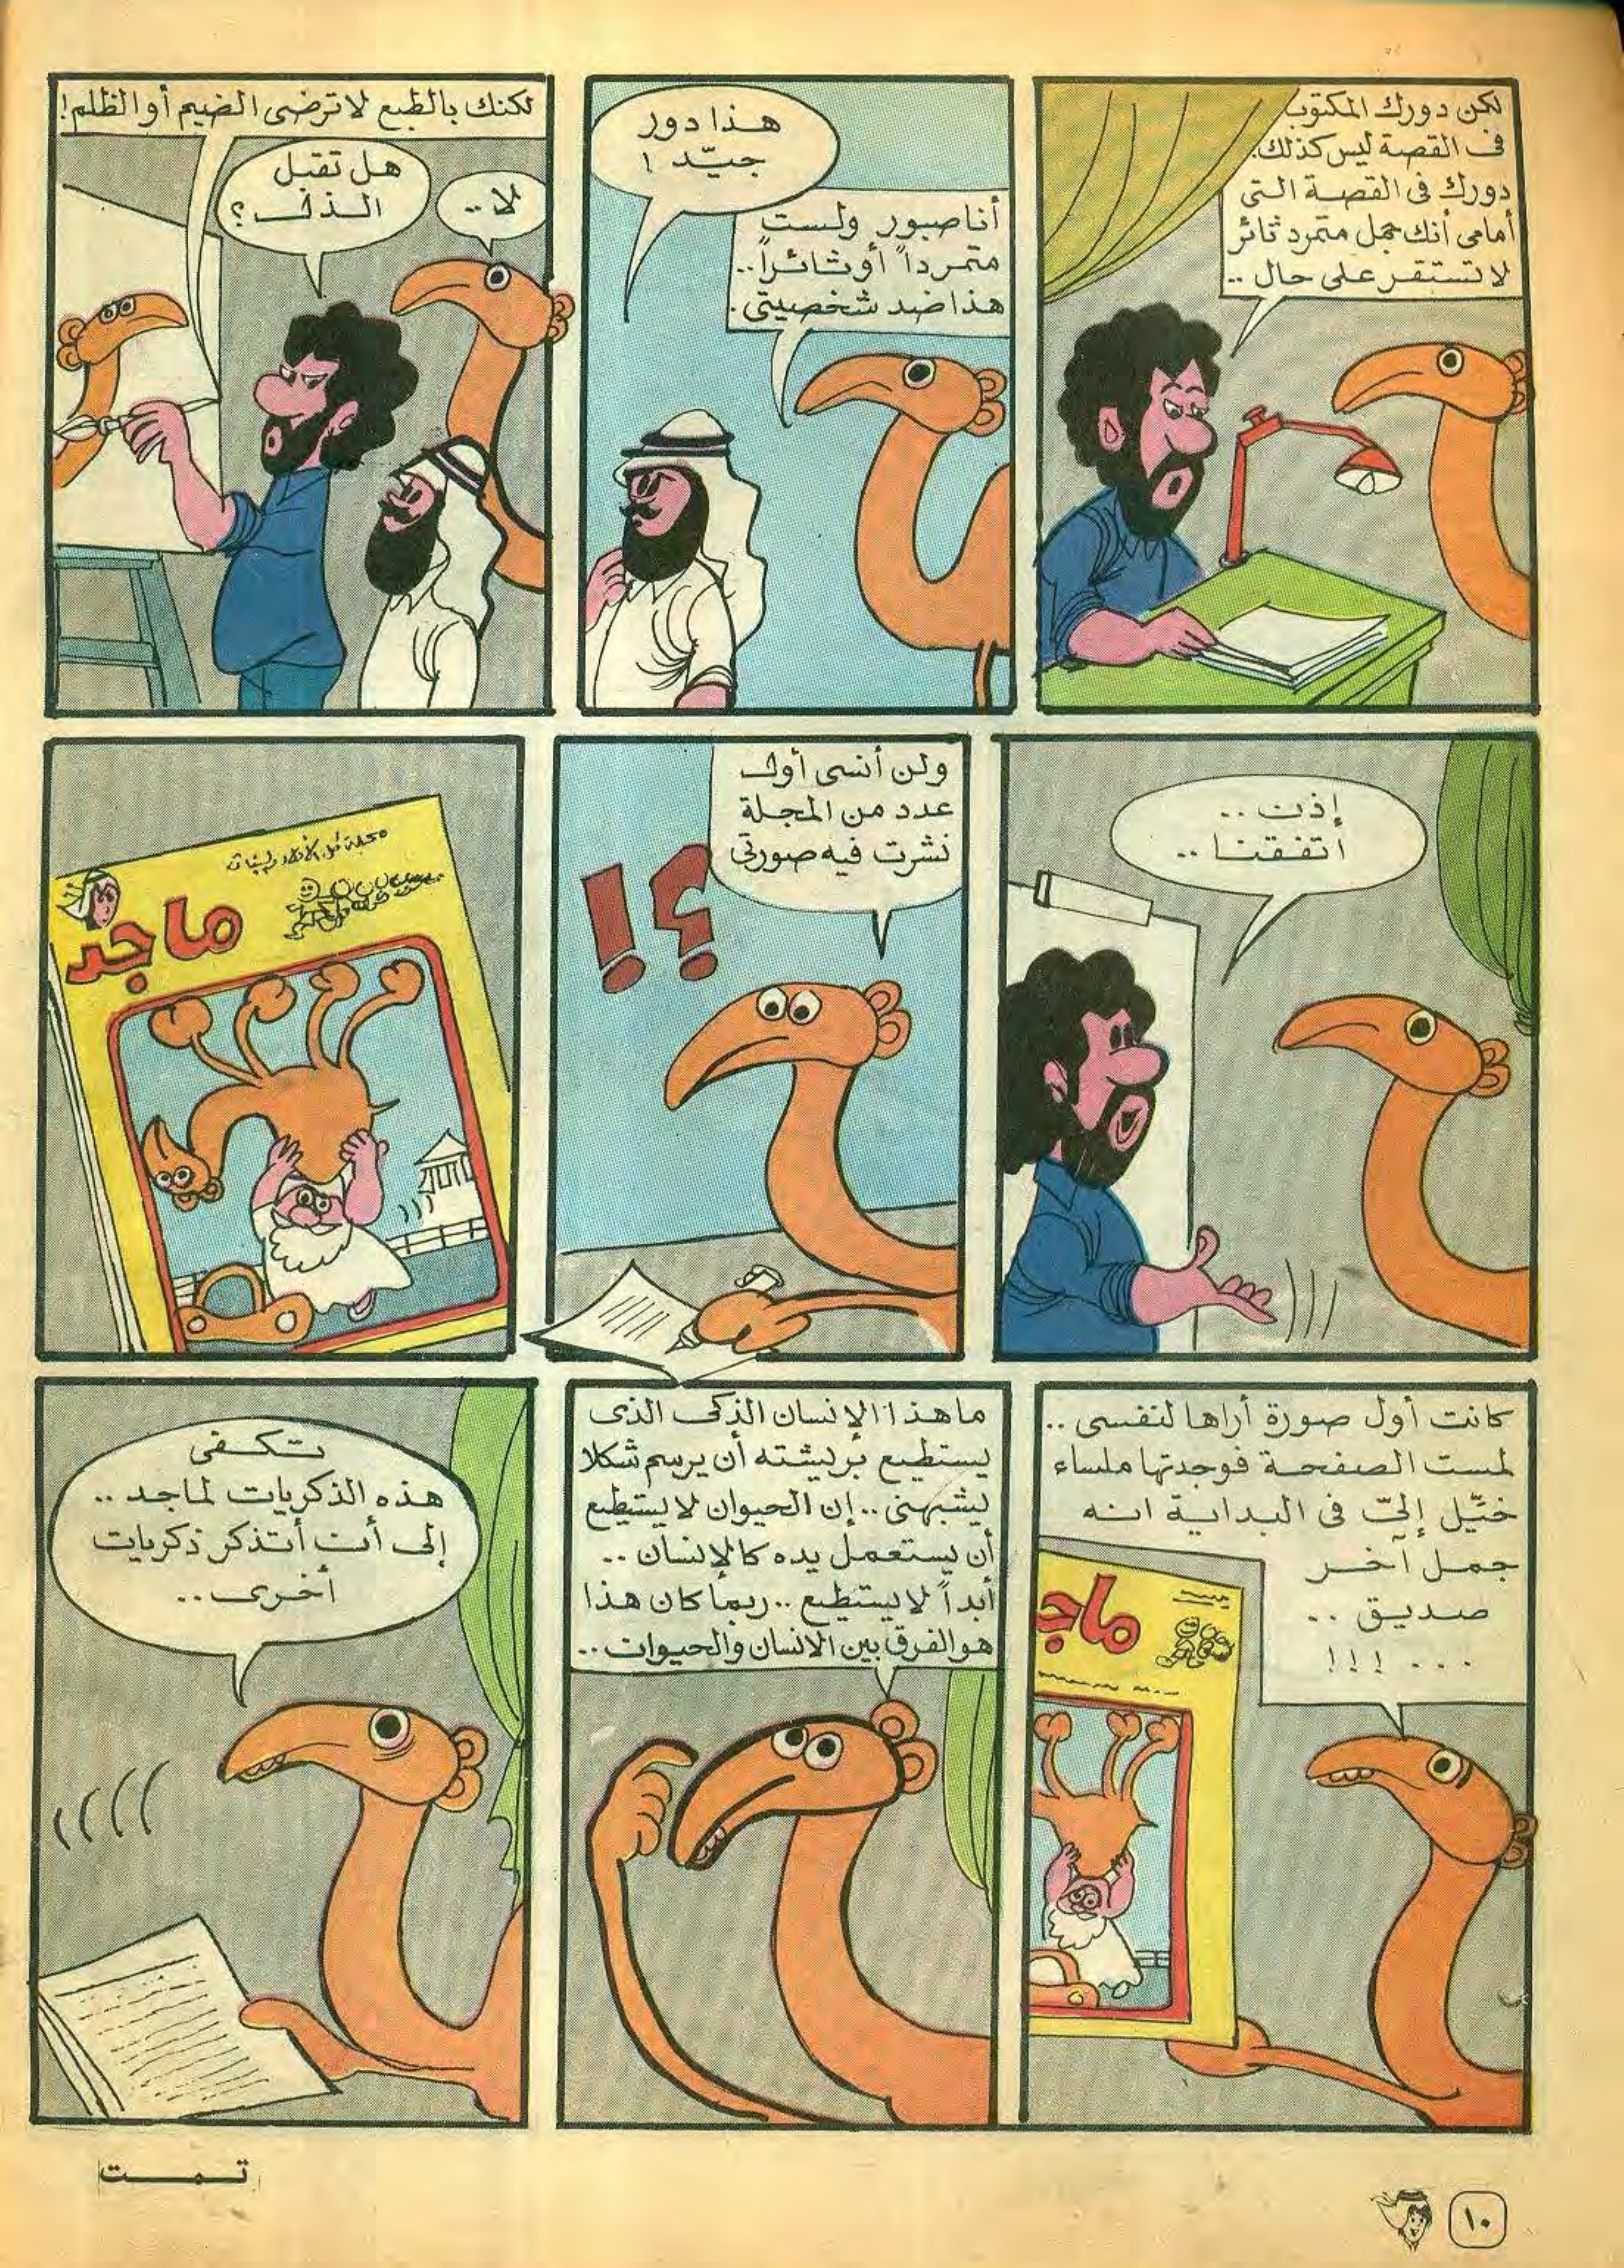 لكن دورك المكتوب
في القصة ليس كذلك.
دورك في القصة التي
أمامي أنك جمل متمرد ثائر
لا تستقر على حال ..
هذا دور
جيّد !
أنا صبور ولست
متمرداً أو ثائراً ..
هذا ضد شخصيتي .
لكنك بالطبع لا ترضى الضيم أو الظلم !
هل تقبل
الذل ؟
لا ..
إذن ..
اتفقنا ..
ولن أنسى أول
عدد من المجلة
نشرت فيه صورتي
؟!
ماجد
كانت أول صورة أراها لنفسي ..
لمست الصفحة فوجدتها ملساء
خيّل إليّ في البداية انه
جمل آخر
صديق ..
... !!!
ماجد
ما هذا الإنسان الذكي الذي
يستطيع بريشته أن يرسم شكلا
يشبهني .. إن الحيوان لا يستطيع
أن يستعمل يده كالإنسان ..
أبداً لا يستطيع .. ربما كان هذا
هو الفرق بين الانسان والحيوان ..
تكفي
هذه الذكريات لماجد ..
إلى أن أتذكر ذكريات
أخرى ..
تمت
١٠